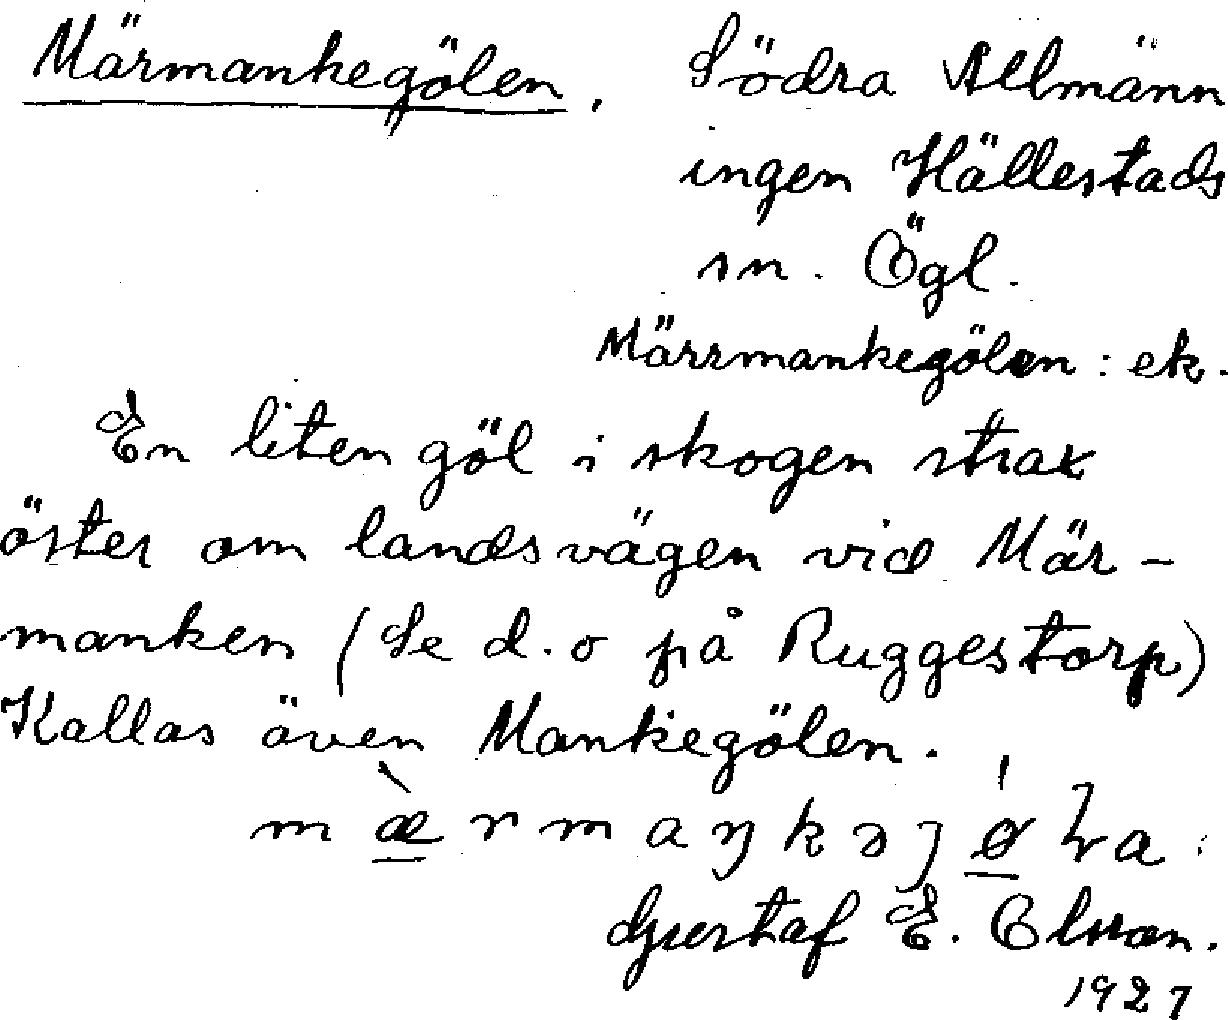 Märmankegölen, Södra Allmänn
ingen Hällestads
sn. Ögl.
Märrmankegölen : ek.
En liten göl i skogen strax
öster om landsvägen vid Mär-
manken (Se d.o på Ruggestorp)
Kallas även Mankegölen.
Gustaf E. Olsson.
1927